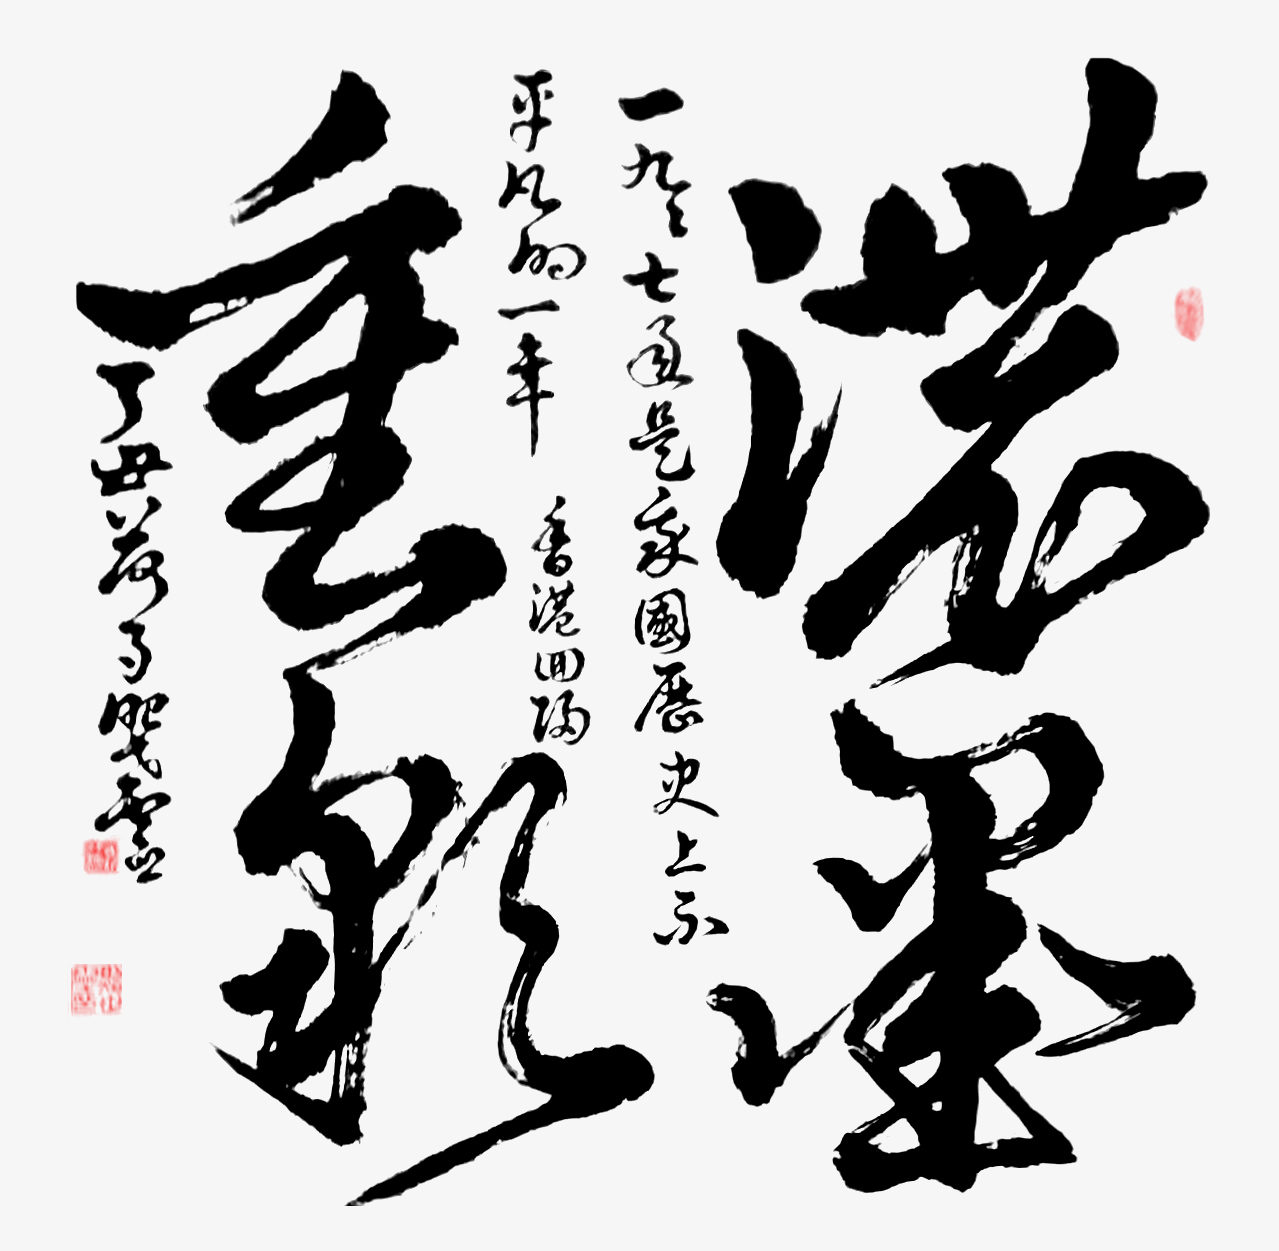 濃墨
重彩
一九九七年是我國歷史上不
平凡的一年
香港回歸
丁丑